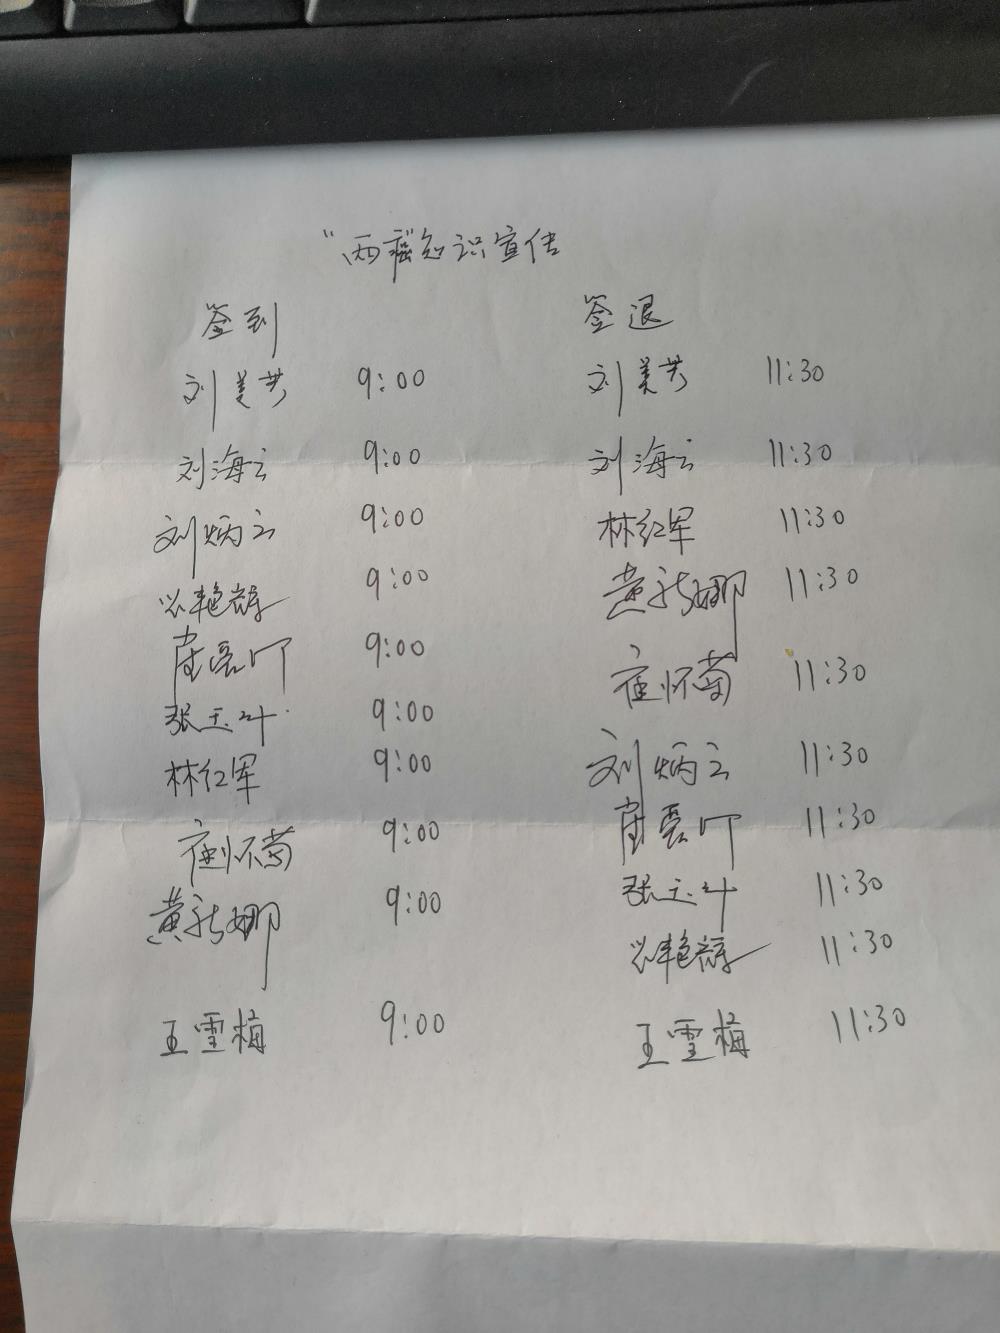 "两癌"知识宣传
签到 签退
刘美芳 9:00 刘美芳 11:30
刘海云 9:00 刘海云 11:30
刘炳云 9:00 林红军 11:30
9:00 黄 娜 11:30
9:00 崔怀菊 11:30
张玉叶 9:00 刘炳云 11:30
林红军 9:00 11:30
崔怀菊 9:00 张玉叶 11:30
黄 娜 9:00 11:30
王雪梅 9:00 王雪梅 11:30